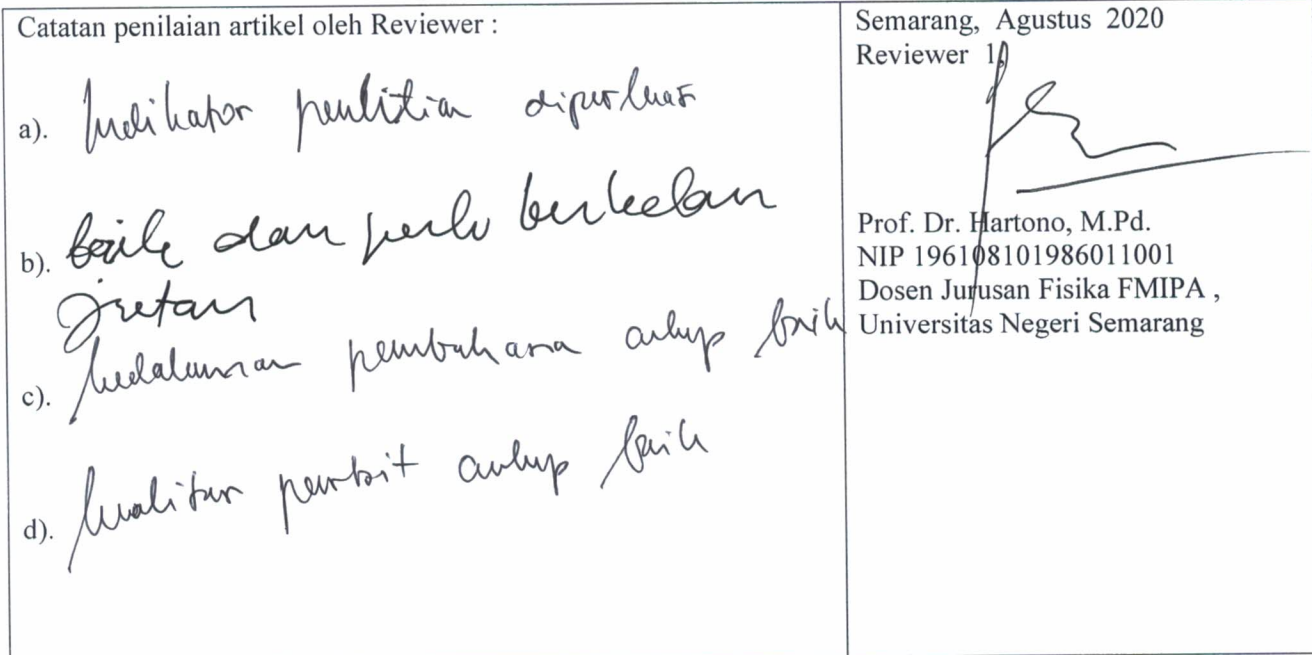 Catatan penilaian artikel oleh Reviewer :
a). Indikator penelitian diperluas
b). baik dan perlu berkelan
jutan
c). kedalaman pembahasan cukup baik
d). kualitas penerbit cukup baik
Semarang, Agustus 2020
Reviewer 1,
Prof. Dr. Hartono, M.Pd.
NIP 196108101986011001
Dosen Jurusan Fisika FMIPA ,
Universitas Negeri Semarang